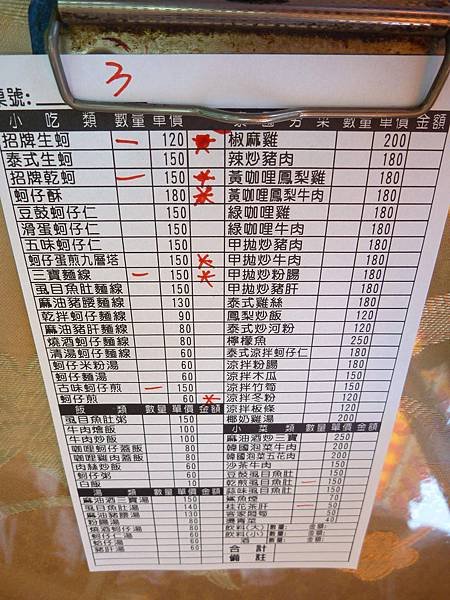 3
桌號:
小吃類 數量 單價
招牌生蚵 一 120
泰式生蚵 150
招牌乾蚵 一 150
蚵仔酥 180
豆豉蚵仔仁 150
滑蛋蚵仔仁 150
五味蚵仔仁 150
蚵仔蛋煎九層塔 150
三寶麵線 一 150
虱目魚肚麵線 150
麻油豬腰麵線 130
乾拌蚵仔麵線 90
麻油豬肝麵線 80
燒酒蚵仔麵線 60
清湯蚵仔麵線 60
蚵仔米粉湯 60
蚵仔麵湯 60
古味蚵仔煎 一 150
蚵仔煎 60
飯類 數量 單價 金額
虱目魚肚粥 150
牛肉燴飯 100
牛肉炒飯 100
咖哩蚵仔蓋飯 80
咖哩雞肉蓋飯 80
肉絲炒飯 60
蚵仔粥 60
白飯 10
湯類 數量 單價 金額
麻油酒三寶湯 150
虱目魚肚湯 140
麻油豬腰湯 130
粉腸湯 80
燒酒蚵仔湯 60
蚵仔仁湯 60
蚵仔湯 60
豬肝湯 60
方菜 數量 單價 金額
椒麻雞 200
辣炒豬肉 180
黃咖哩鳳梨雞 180
黃咖哩鳳梨牛肉 180
綠咖哩雞 180
綠咖哩牛肉 180
甲拋炒豬肉 180
甲拋炒牛肉 180
甲拋炒粉腸 180
甲拋炒豬肝 180
泰式雞絲 180
鳳梨炒飯 120
泰式炒河粉 120
檸檬魚 250
泰式涼拌蚵仔仁 180
涼拌粉腸 180
涼拌木瓜 150
涼拌竹筍 150
涼拌冬粉 120
涼拌板條 120
椰奶雞湯 200
小菜類 數量 單價 金額
麻油酒炒三寶 250
韓國泡菜牛肉 200
韓國泡菜五花肉 200
沙茶牛肉 150
豆豉虱目魚肚 150
乾煎虱目魚肚 一 150
蒜味虱目魚肚 150
鯊魚煙 70
桂花茶肝 一 50
客家悶筍 50
燙青菜 40
飲料(大) 數量: 金額:
飲料(小) 數量: 金額:
酒 數量: 金額:
合計
備註